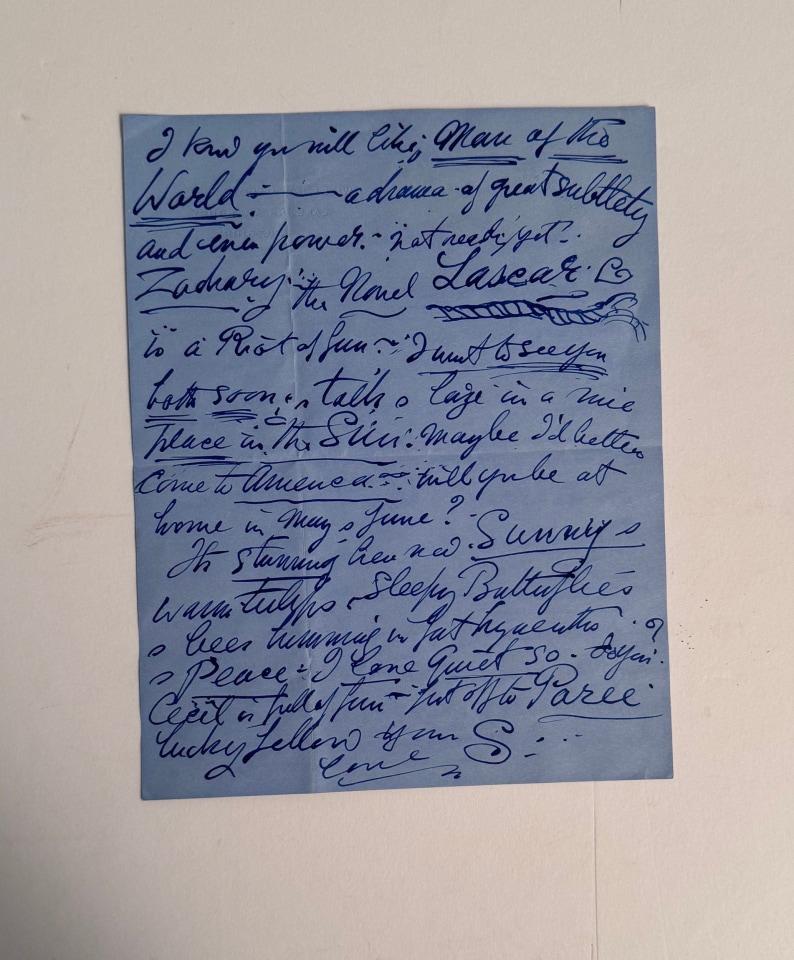 I know you will like Man of the
World — a drama of great subtlety
and even power. - not ready yet!
Zachary: the Novel Lascar:
is a Riot of fun - I want to see you
both soon & talk & laze in a nice
place in the Sun. Maybe I'd better
come to America - will you be at
home in May & June?
Its stunning here now. Sunny &
warm Tulips, Sleepy Butterflies
& bees humming in fat hyacinths
& Peace: I love Quiet so -
Cecil is full of fun - just off to Paree
lucky fellow your S
love